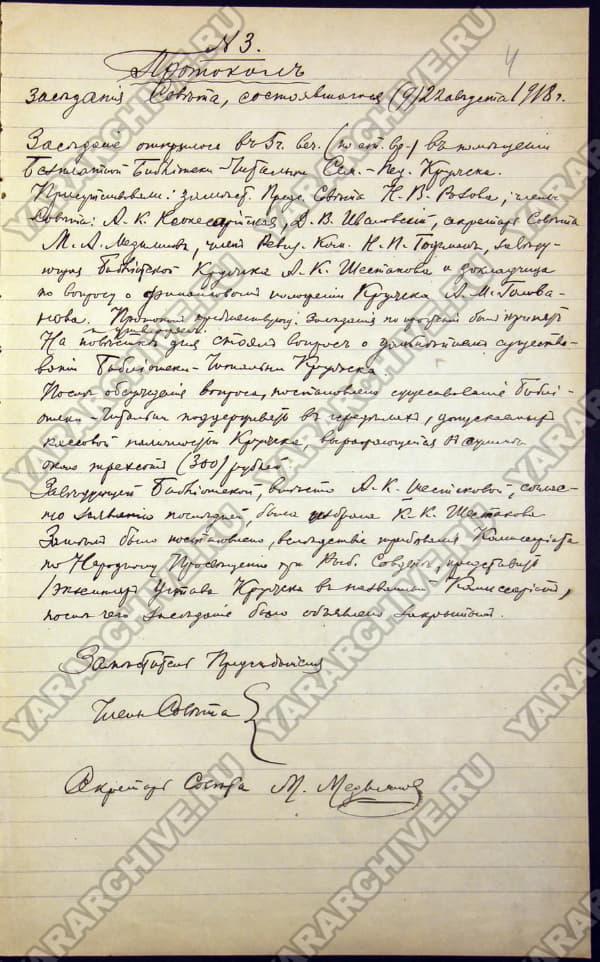 N 3.
4
Протоколъ
засѣданія Совѣта, состоявшагося (9)22 августа 1918 г.
Засѣданіе открылось въ 5 ч. веч. (по ст. вр.) въ помѣщеніи
Безплатной Библіотеки-Читальни Сем.-Пед. Кружка.
Присутствовали: замѣст. Предс. Совѣта Н. В. Розова, члены
Совѣта: А. К. Д. В. секретарь Совѣта
М. А. Медынцевъ, членъ Ревиз. Ком. Н. П. завѣду-
ющая Библіотекой Кружка А. К. Шестакова и докладчица
по вопросу о финансовомъ положеніи Кружка А. М. Голова-
нова. Протоколъ предшествующ. засѣданія по прочтеніи былъ принятъ
и утвержденъ.
На повѣсткѣ дня стоялъ вопросъ о дальнѣйшемъ существо-
ваніи Библіотеки-Читальни Кружка.
Послѣ обсужденія вопроса, постановлено существованіе Библі-
отеки-Читальни поддерживать въ предѣлахъ, допускаемыхъ
кассовой наличностью Кружка, выражающейся въ суммѣ
около трехсотъ (300) рублей.
Завѣдующей Библіотекой, вмѣсто А. К. Шестаковой, соглас-
но заявленію послѣдней, была избрана К. К. Шестакова
Затѣмъ было постановлено, вслѣдствіе требованія Комиссаріата
по Народному Просвѣщенію при Рыб. Совдепѣ, представить
1 экземпляръ Устава Кружка въ названный Комиссаріатъ,
послѣ чего засѣданіе было объявлено закрытымъ.
Замѣститель Предсѣдателя
Члены Совѣта
Секретарь Совѣта М. Медынцевъ
YARARCHIVE.RU